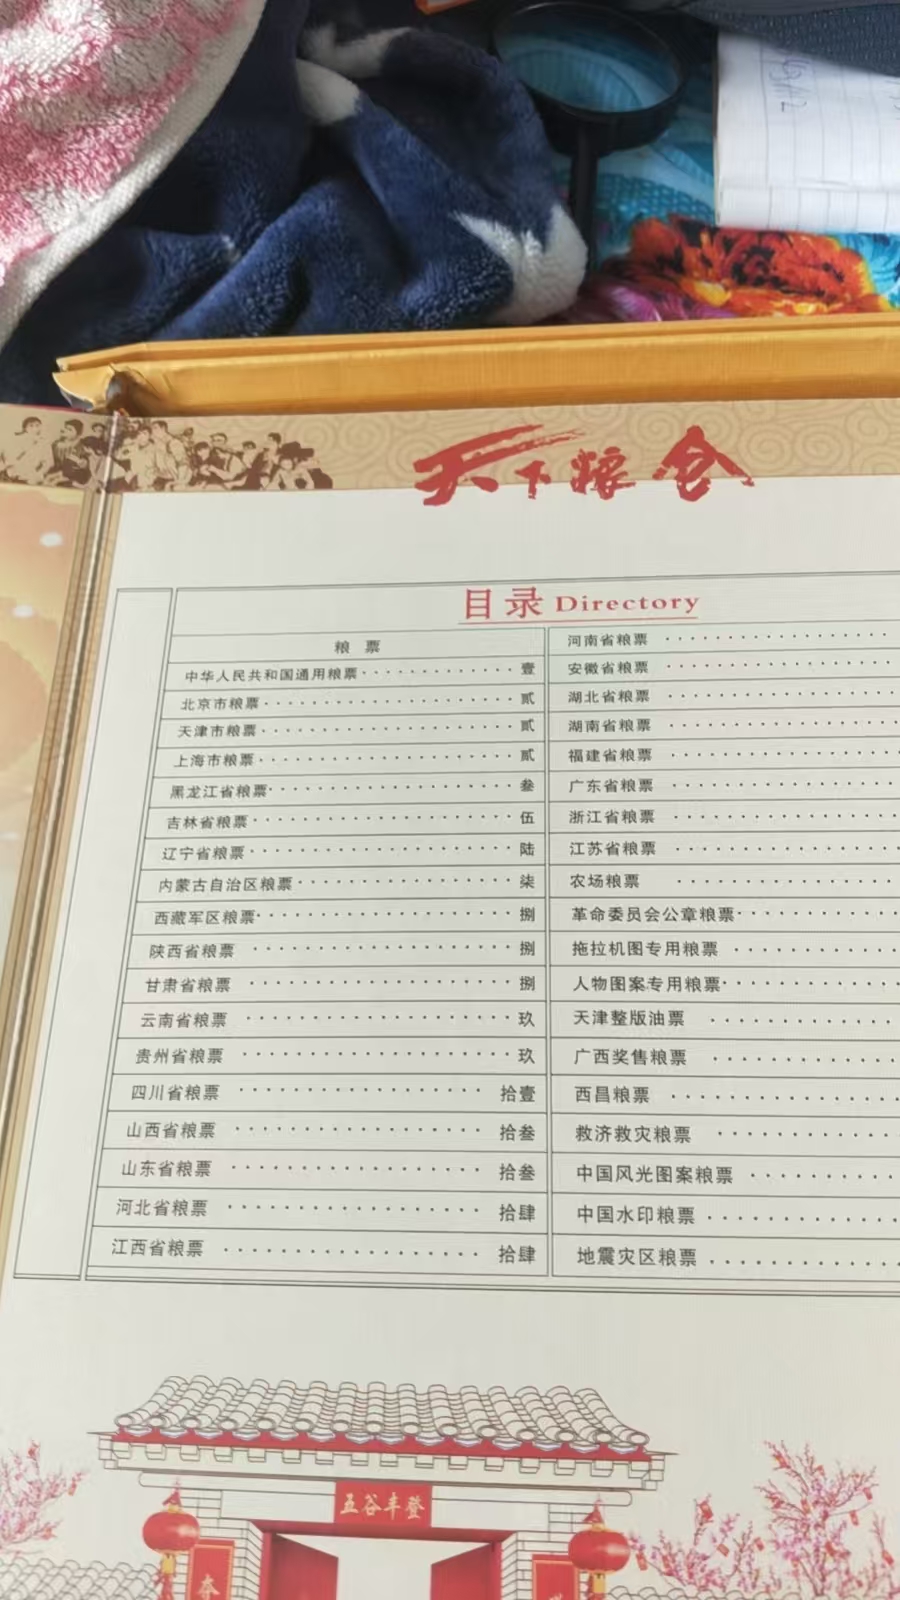 天下粮仓
目录 Directory
粮 票
中华人民共和国通用粮票 壹
北京市粮票 贰
天津市粮票 贰
上海市粮票 贰
黑龙江省粮票 叁
吉林省粮票 伍
辽宁省粮票 陆
内蒙古自治区粮票 柒
西藏军区粮票 捌
陕西省粮票 捌
甘肃省粮票 捌
云南省粮票 玖
贵州省粮票 玖
四川省粮票 拾壹
山西省粮票 拾叁
山东省粮票 拾叁
河北省粮票 拾肆
江西省粮票 拾肆
河南省粮票
安徽省粮票
湖北省粮票
湖南省粮票
福建省粮票
广东省粮票
浙江省粮票
江苏省粮票
农场粮票
革命委员会公章粮票
拖拉机图专用粮票
人物图案专用粮票
天津整版油票
广西奖售粮票
西昌粮票
救济救灾粮票
中国风光图案粮票
中国水印粮票
地震灾区粮票
五谷丰登